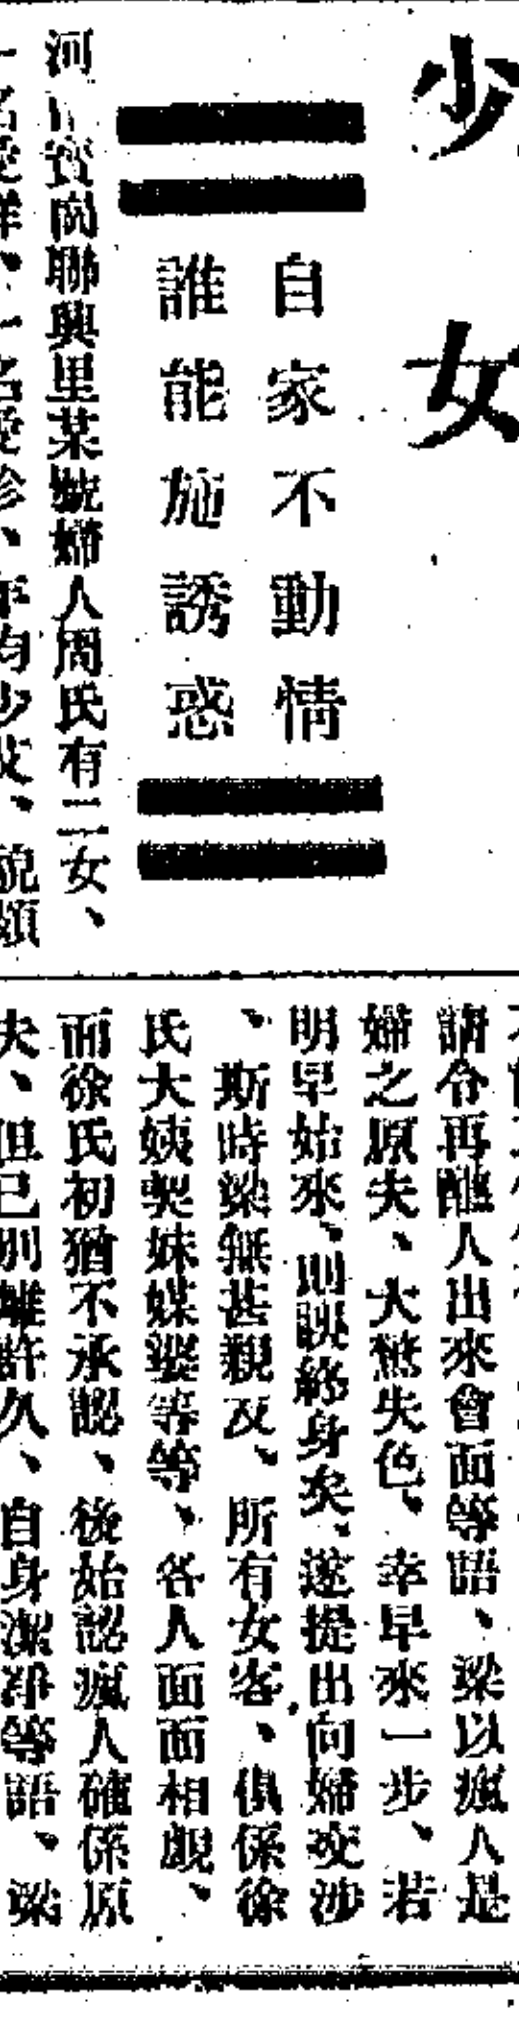 少女
自家不動情
誰能施誘惑
河 寳岡聯興里某號婦人周氏有二女、
一名愛群、一名愛珍、年均少艾、貌頗
請令再醮人出來會面等語、梁以瘋人是
婦之原夫、大驚失色、幸早來一步、若
明早始來、則誤終身矣、遂提出向婦交涉
、斯時梁無甚親友、所有女客、俱係徐
氏大姨契妹媒婆等等、各人面面相覷、
而徐氏初猶不承認、後始認瘋人確係原
夫、但已別離許久、自身潔凈等語、梁